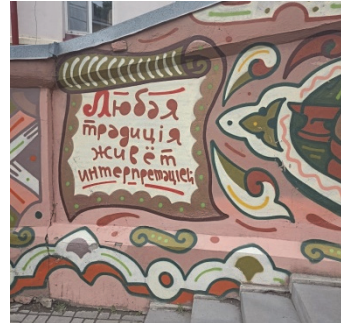 Любая
традиція
живёт
интерпретаціей